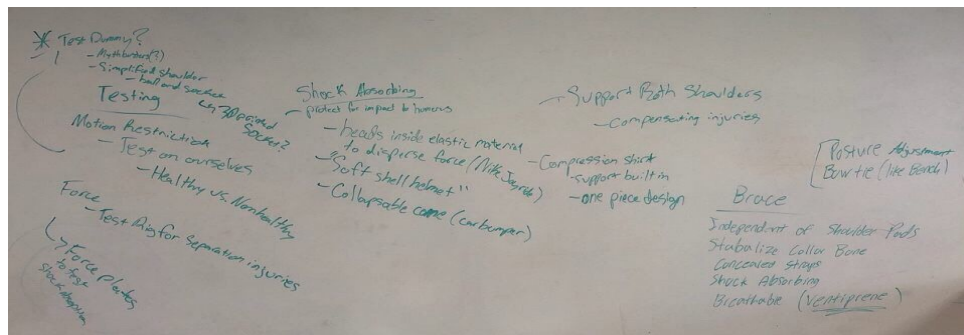 * Test Dummy?
- Mythbusters(?)
- Simplified shoulder
- ball and socket
↳ 3D printed
socket?
Testing
Motion Restriction
- Test on ourselves
- Healthy vs. Nonhealthy
Force
- Test Rig for Separation injuries
↳ Force plates
to test
shock absorption
Shock Absorbing
- protect for impact to humorus
- beads inside elastic material
to disperse force (Nike, )
- "Soft shell helmet"
- Collapsable cone (car bumper)
- Support Both Shoulders
- Compensating injuries
- Compression shirt
- support built in
- one piece design
Posture Adjustment
Bowtie (like )
Brace
Independent of Shoulder Pads
Stabalize Collar Bone
Concealed straps
Shock Absorbing
Breathable (Ventiprene)